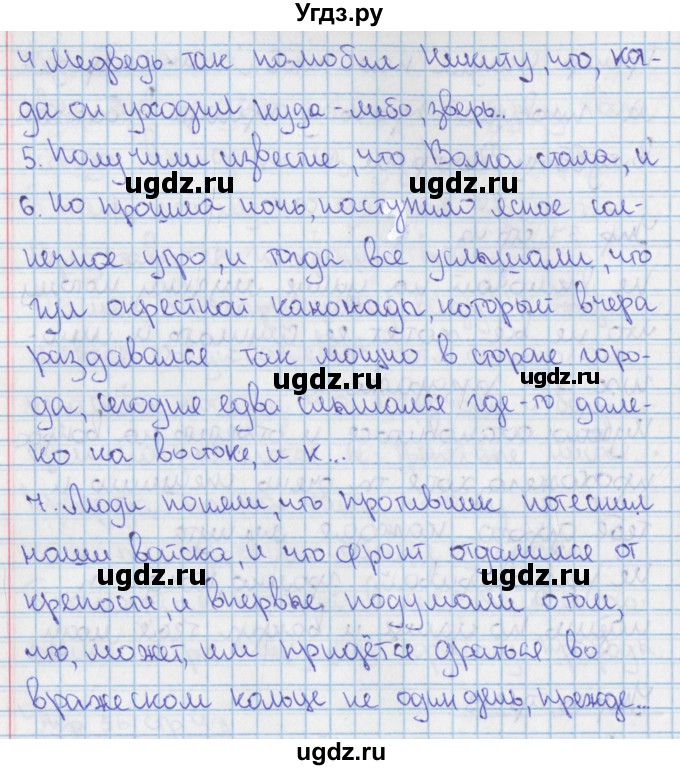 Угдз.ру
4. Медведь так полюбил Никиту, что, ког-
да он уходил куда-либо, зверь..
5. Получили известие, что Волга стала, и
ugdz.ru ugdz.ru
6. Но прошла ночь, наступило ясное сол-
нечное утро, и тогда все услышали, что
гул окрестной канонады, который вчера
раздавался так мощно в стороне горо-
ugdz.ru ugdz.ru
да, сегодня едва слышался где-то дале-
ко на востоке, и к...
7. Люди поняли, что противник потеснил
наши войска, и что фронт отдалился от
ugdz.ru ugdz.ru
крепости, и впервые подумали о том,
что, может, им придётся драться во
вражеском кольце не один день, прежде...
ugdz.ru